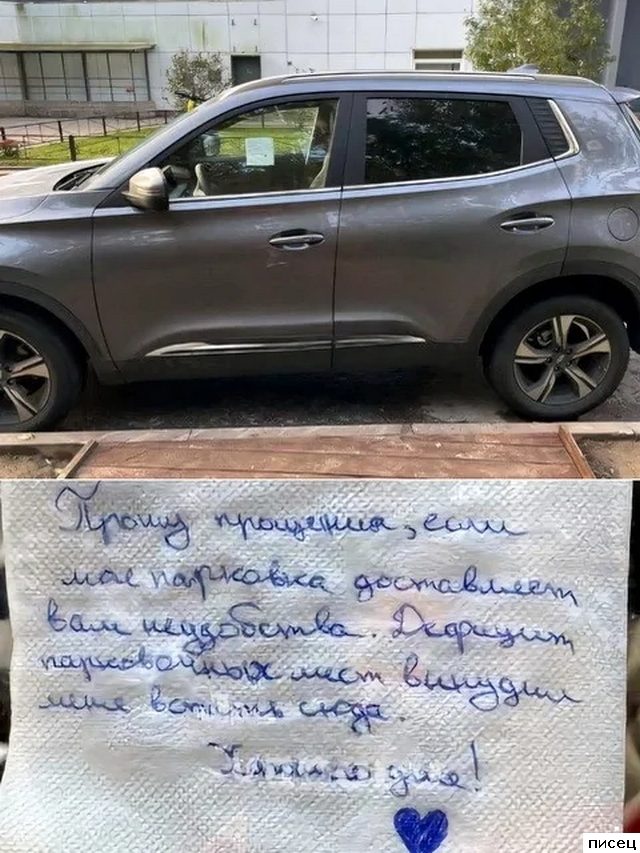 Прошу прощения, если
моя парковка доставляет
вам неудобства. Дефицит
парковочных мест вынудил
меня встать сюда.
Хорошего дня!
писец